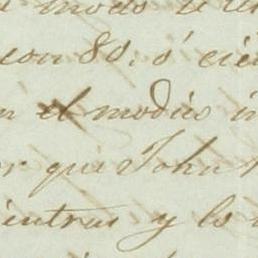 modo
con 80. ó cie
el medio i
or que John
ientras y lo